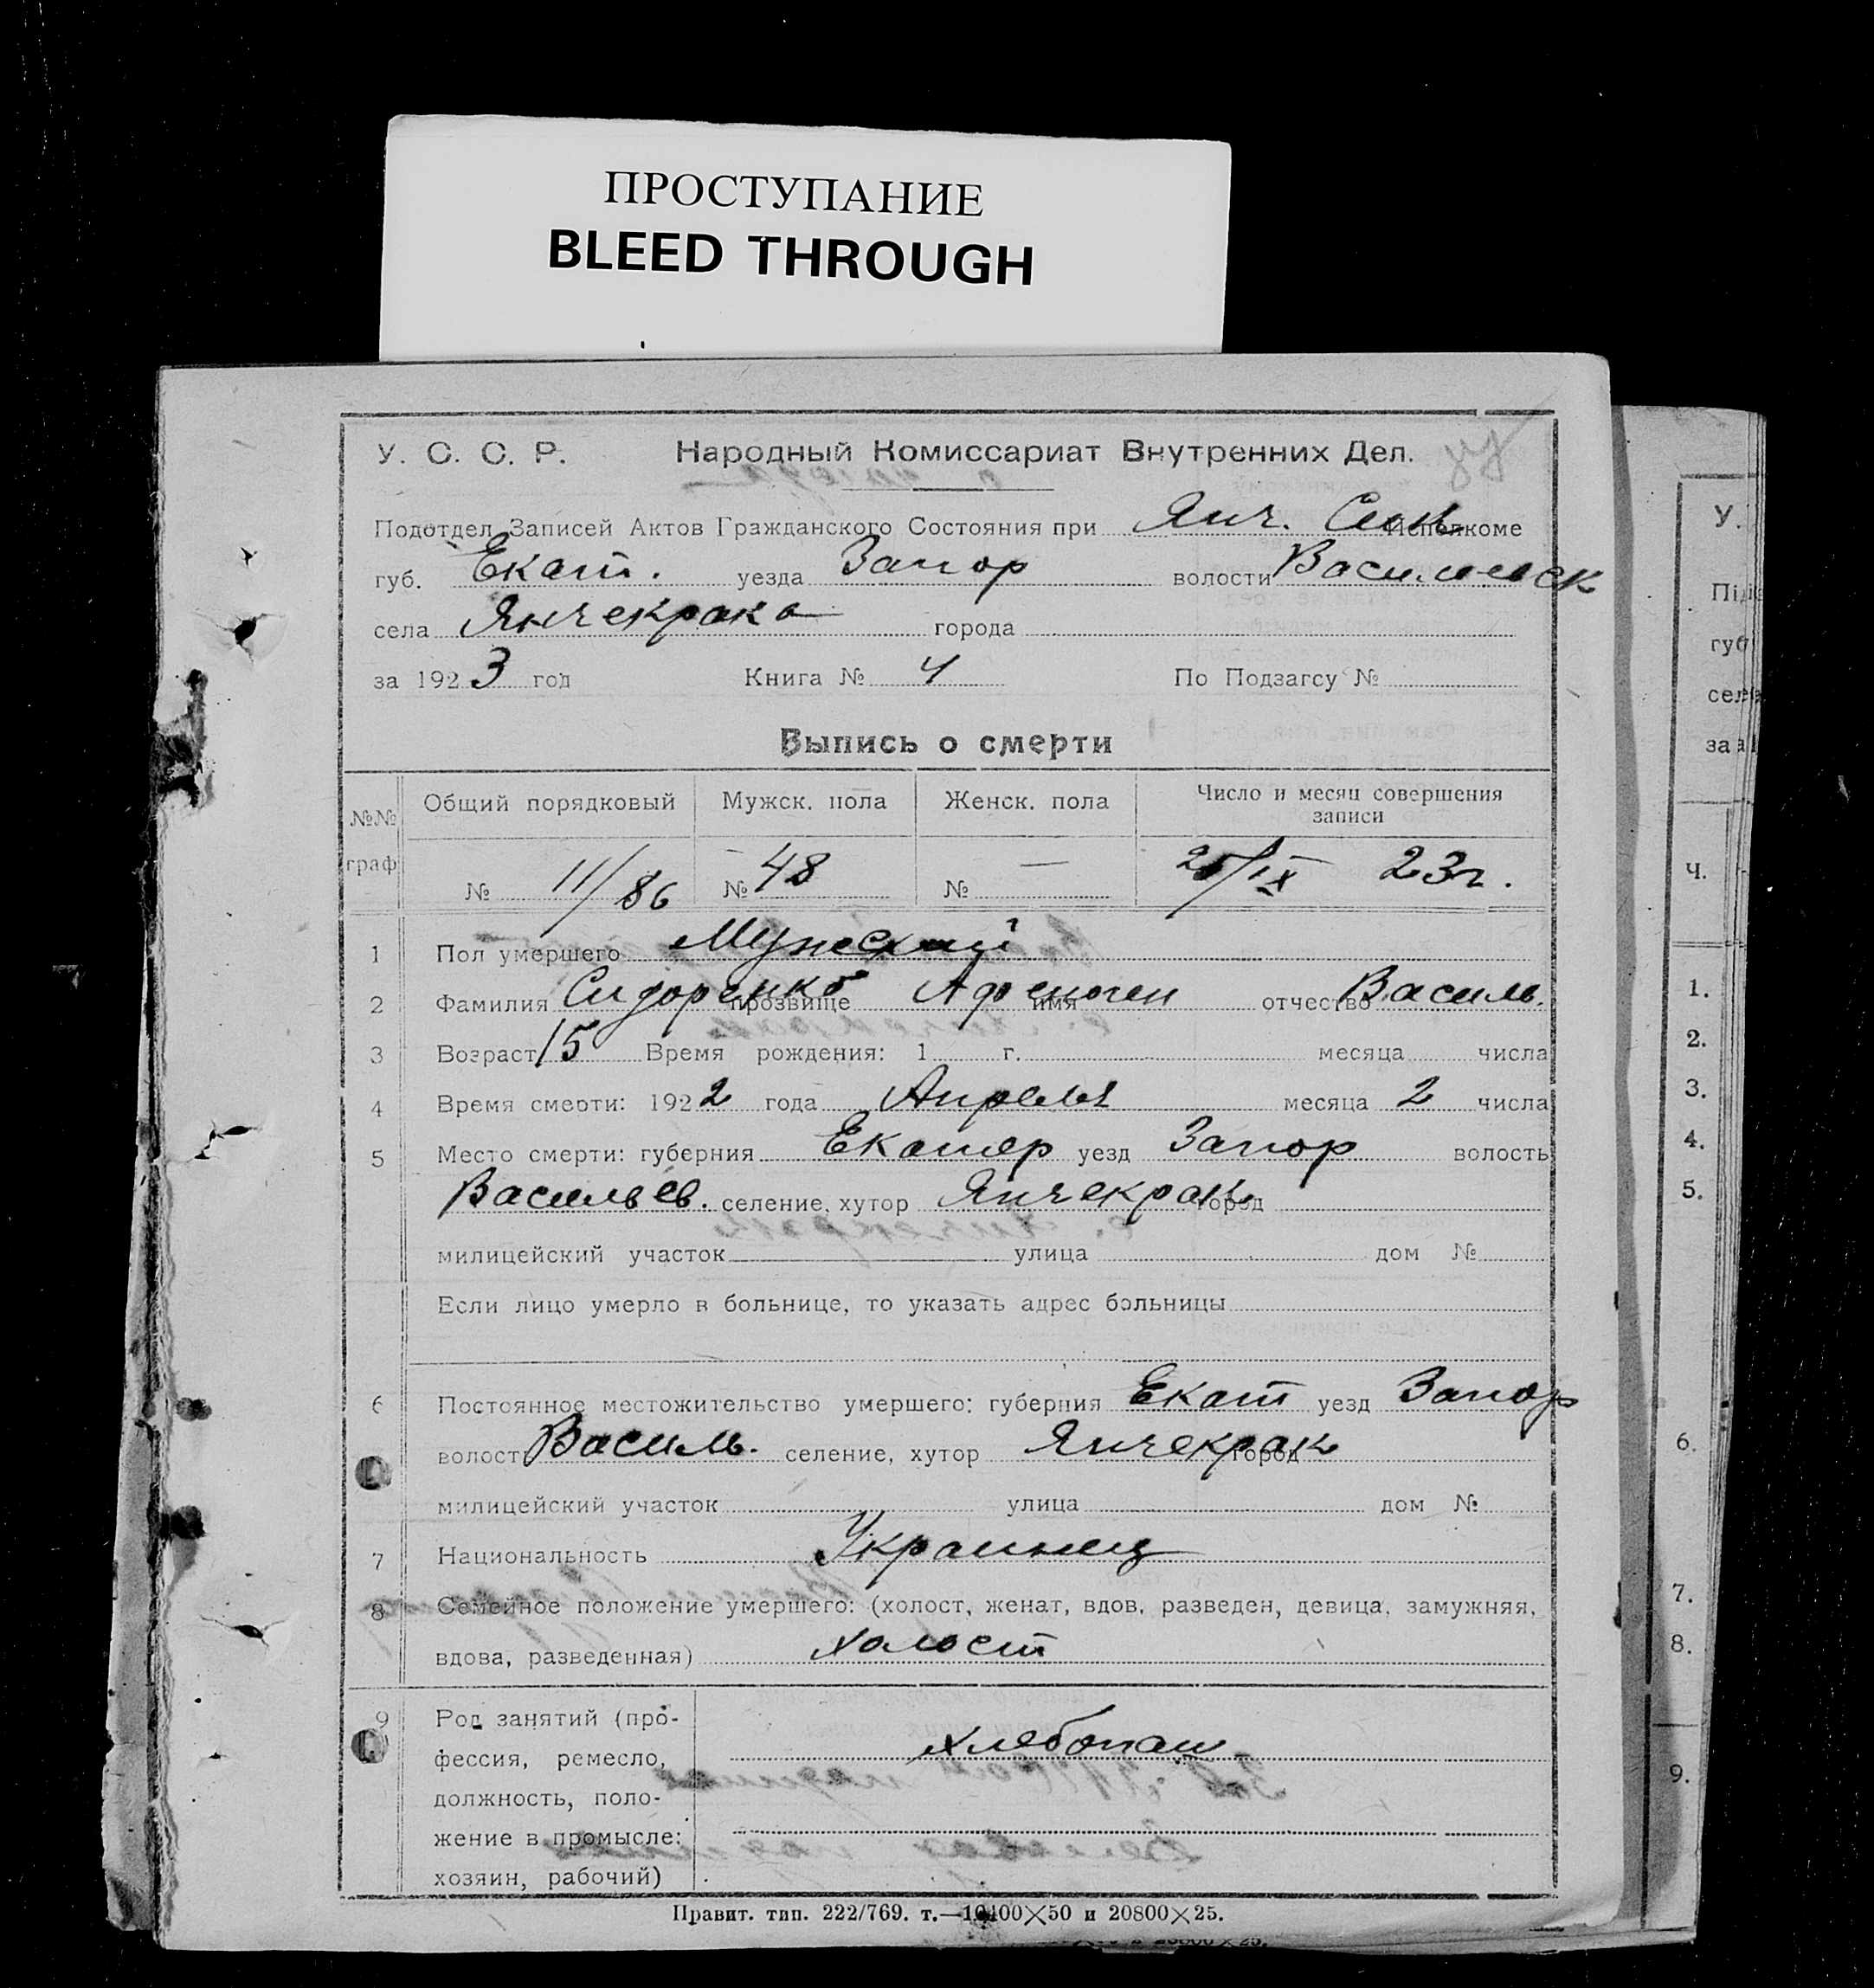 ПРОСТУПАНИЕ
BLEED THROUGH
У. С. С. Р. Народный Комиссариат Внутренних Дел.
Подотдел Записей Актов Гражданского Состояния при Янч. Исполкоме
губ. Екат. уезда Запор волости Васильевск
села Янчекрака города
за 1923 год Книга № 4 По Подзагсу №
Выпись о смерти
№№ граф Общий порядковый Мужск. пола Женск. пола Число и месяц совершения записи
№ 11/86 № 48 № — 25/IX 23г.
1 Пол умершего Мужской
2 Фамилия Сидоренко прозвище Афеноген имя отчество Василь.
3 Возраст 15 Время рождения: 1 г. месяца числа
4 Время смерти: 1922 года Апреля месяца 2 числа
5 Место смерти: губерния Екатер уезд Запор волость
Васильев. селение, хутор Янчекрак город
милицейский участок улица дом №
Если лицо умерло в больнице, то указать адрес больницы
6 Постоянное местожительство умершего: губерния Екат уезд Запор
волост Василь. селение, хутор Янчекрак город
милицейский участок улица дом №
7 Национальность Украинец
8 Семейное положение умершего: (холост, женат, вдов, разведен, девица, замужняя,
вдова, разведенная) холост
9 Род занятий (про-
фессия, ремесло, хлебопаш
должность, поло-
жение в промысле:
хозяин, рабочий)
Правит. тип. 222/769. т.—10400×50 и 20800×25.
У.
губ
за
Ч.
1.
2.
3.
4.
5.
6.
7.
8.
9.